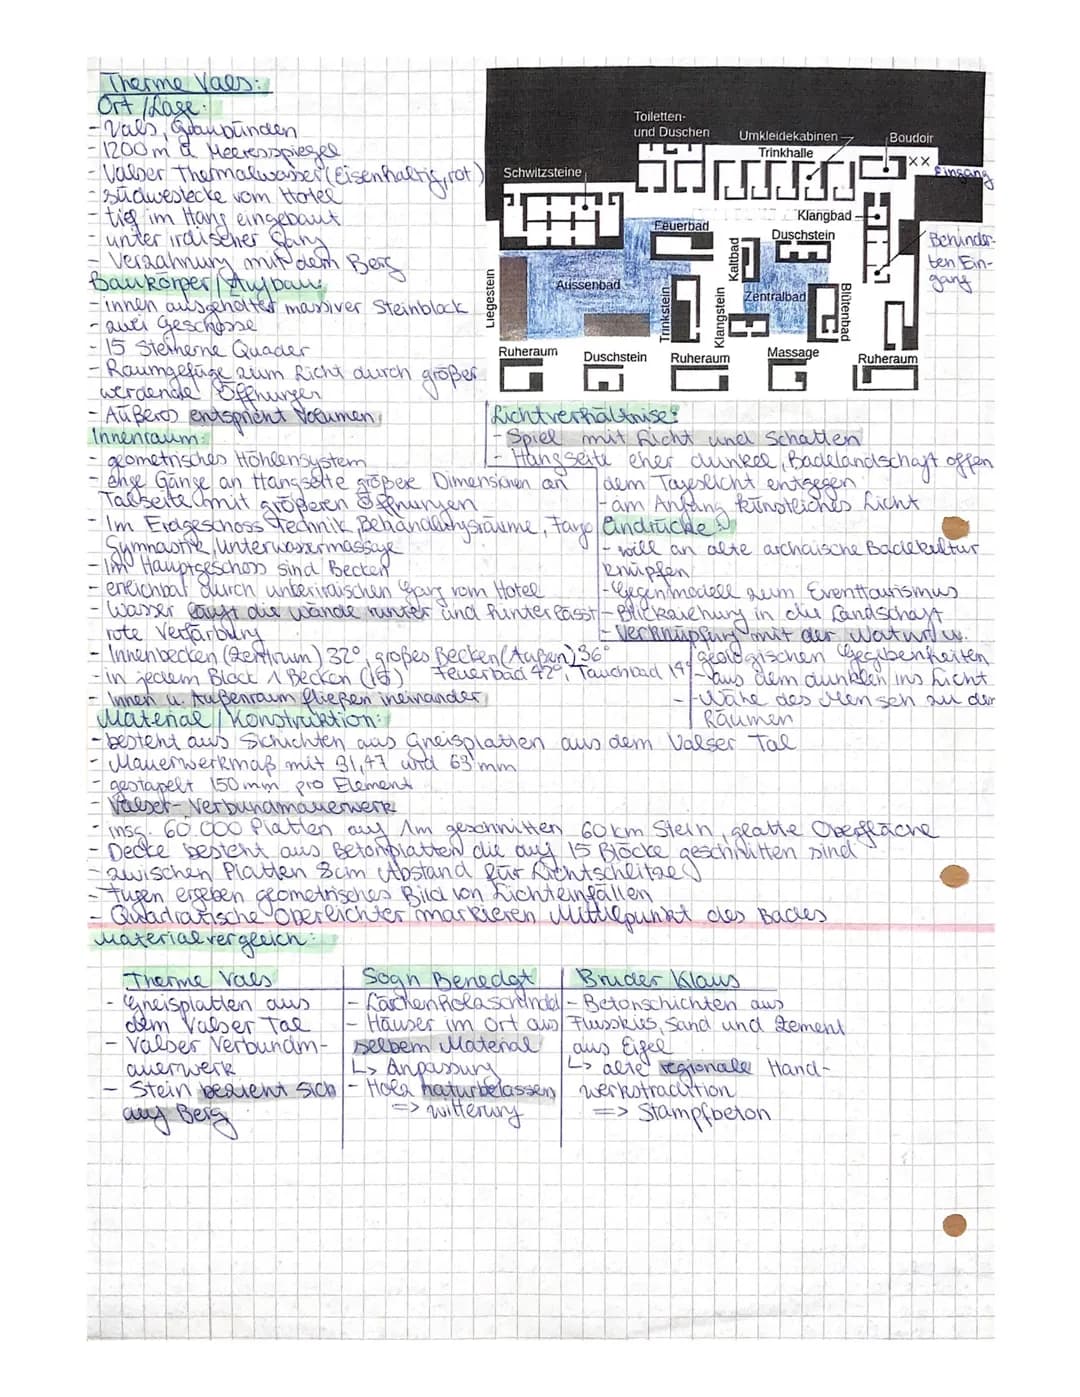 Therme Vals:
Ort / Lage:
- Vals, Graubünden
- 1200 m ü Meeresspiegel
- Valser Thermalwasser (Eisenhaltig, rot)
- Südwestecke vom Hotel
- tief im Hang eingebaut
- unter irdischer Gang
- Verzahnung mit dem Berg
Baukörper / Aufbau:
- innen ausgehöhlter massiver Steinblock
- zwei Geschosse
- 15 Steinerne Quader
- Raumgefüge zum Licht durch größer
werdende Öffnungen
- Äußeres entspricht Volumen
Innenraum:
- geometrisches Höhlensystem
- enge Gänge an Hangseite größere Dimensionen an
Talseite mit größeren Öffnungen
- Im Erdgeschoss Technik, Behandlungsräume, Fango
Gymnastik, Unterwassermassage
- Im Hauptgeschoss sind Becken
- erreichbar durch unterirdischen Gang vom Hotel
- Wasser läuft die Wände runter und hinterlässt
rote Verfärbung
- Innenbecken (Zentrum) 32°, großes Becken (Außen) 36°
- in jedem Block 1 Becken (15) Feuerbad 42°, Tauchbad 14°
- Innen u. Außenraum fließen ineinander
Toiletten-
und Duschen
Umkleidekabinen
Boudoir
Trinkhalle
XX
Eingang
Schwitzsteine
Klangbad
Feuerbad
Duschstein
Behinder-
ten Ein-
gang
Kaltbad
Aussenbad
Liegestein
Trinkstein
Klangstein
Zentralbad
Blütenbad
Ruheraum
Duschstein
Ruheraum
Massage
Ruheraum
Lichtverhältnise:
- Spiel mit Licht und Schatten
- Hangseite eher dunkel, Badelandschaft offen
dem Tageslicht entgegen
- am Anfang künstliches Licht
Eindrücke:
- will an alte archaische Badekultur
knüpfen
- Gegenmodell zum Eventtourismus
- Blickziehung in die Landschaft
- Verknüpfung mit der Natur u.
geologischen Gegebenheiten
- aus dem dunklen ins Licht
- Nähe des Menschen zu den
Räumen
Material / Konstruktion:
- besteht aus Schichten aus Gneisplatten aus dem Valser Tal
- Mauerwerkmaß mit 31,47 und 63 mm
- gestapelt 150 mm pro Element
- Valser-Verbundmauerwerk
- insg. 60.000 Platten auf 1m geschnitten 60 km Stein, glatte Oberfläche
- Decke besteht aus Betonplatten die auf 15 Blöcke geschnitten sind
- zwischen Platten 8cm Abstand für Lichtschlitze
- Fugen ergeben geometrisches Bild von Lichteinfällen
- Quadratische Oberlichter markieren Mittelpunkt des Bades
Materialvergleich:
Therme Vals
- Gneisplatten aus
dem Valser Tal
- Valser Verbundm-
auerwerk
- Stein bezieht sich
auf Berg
Sogn Benedgt
- Lärchenholzschindel
- Häuser im Ort aus
selbem Material
↳ Anpassung
- Holz naturbelassen
=> witterung
Bruder Klaus
- Betonschichten aus
Flusskies, Sand und Zement
aus Eifel
↳ alte regionale Hand-
werkstradition
=> Stampfbeton